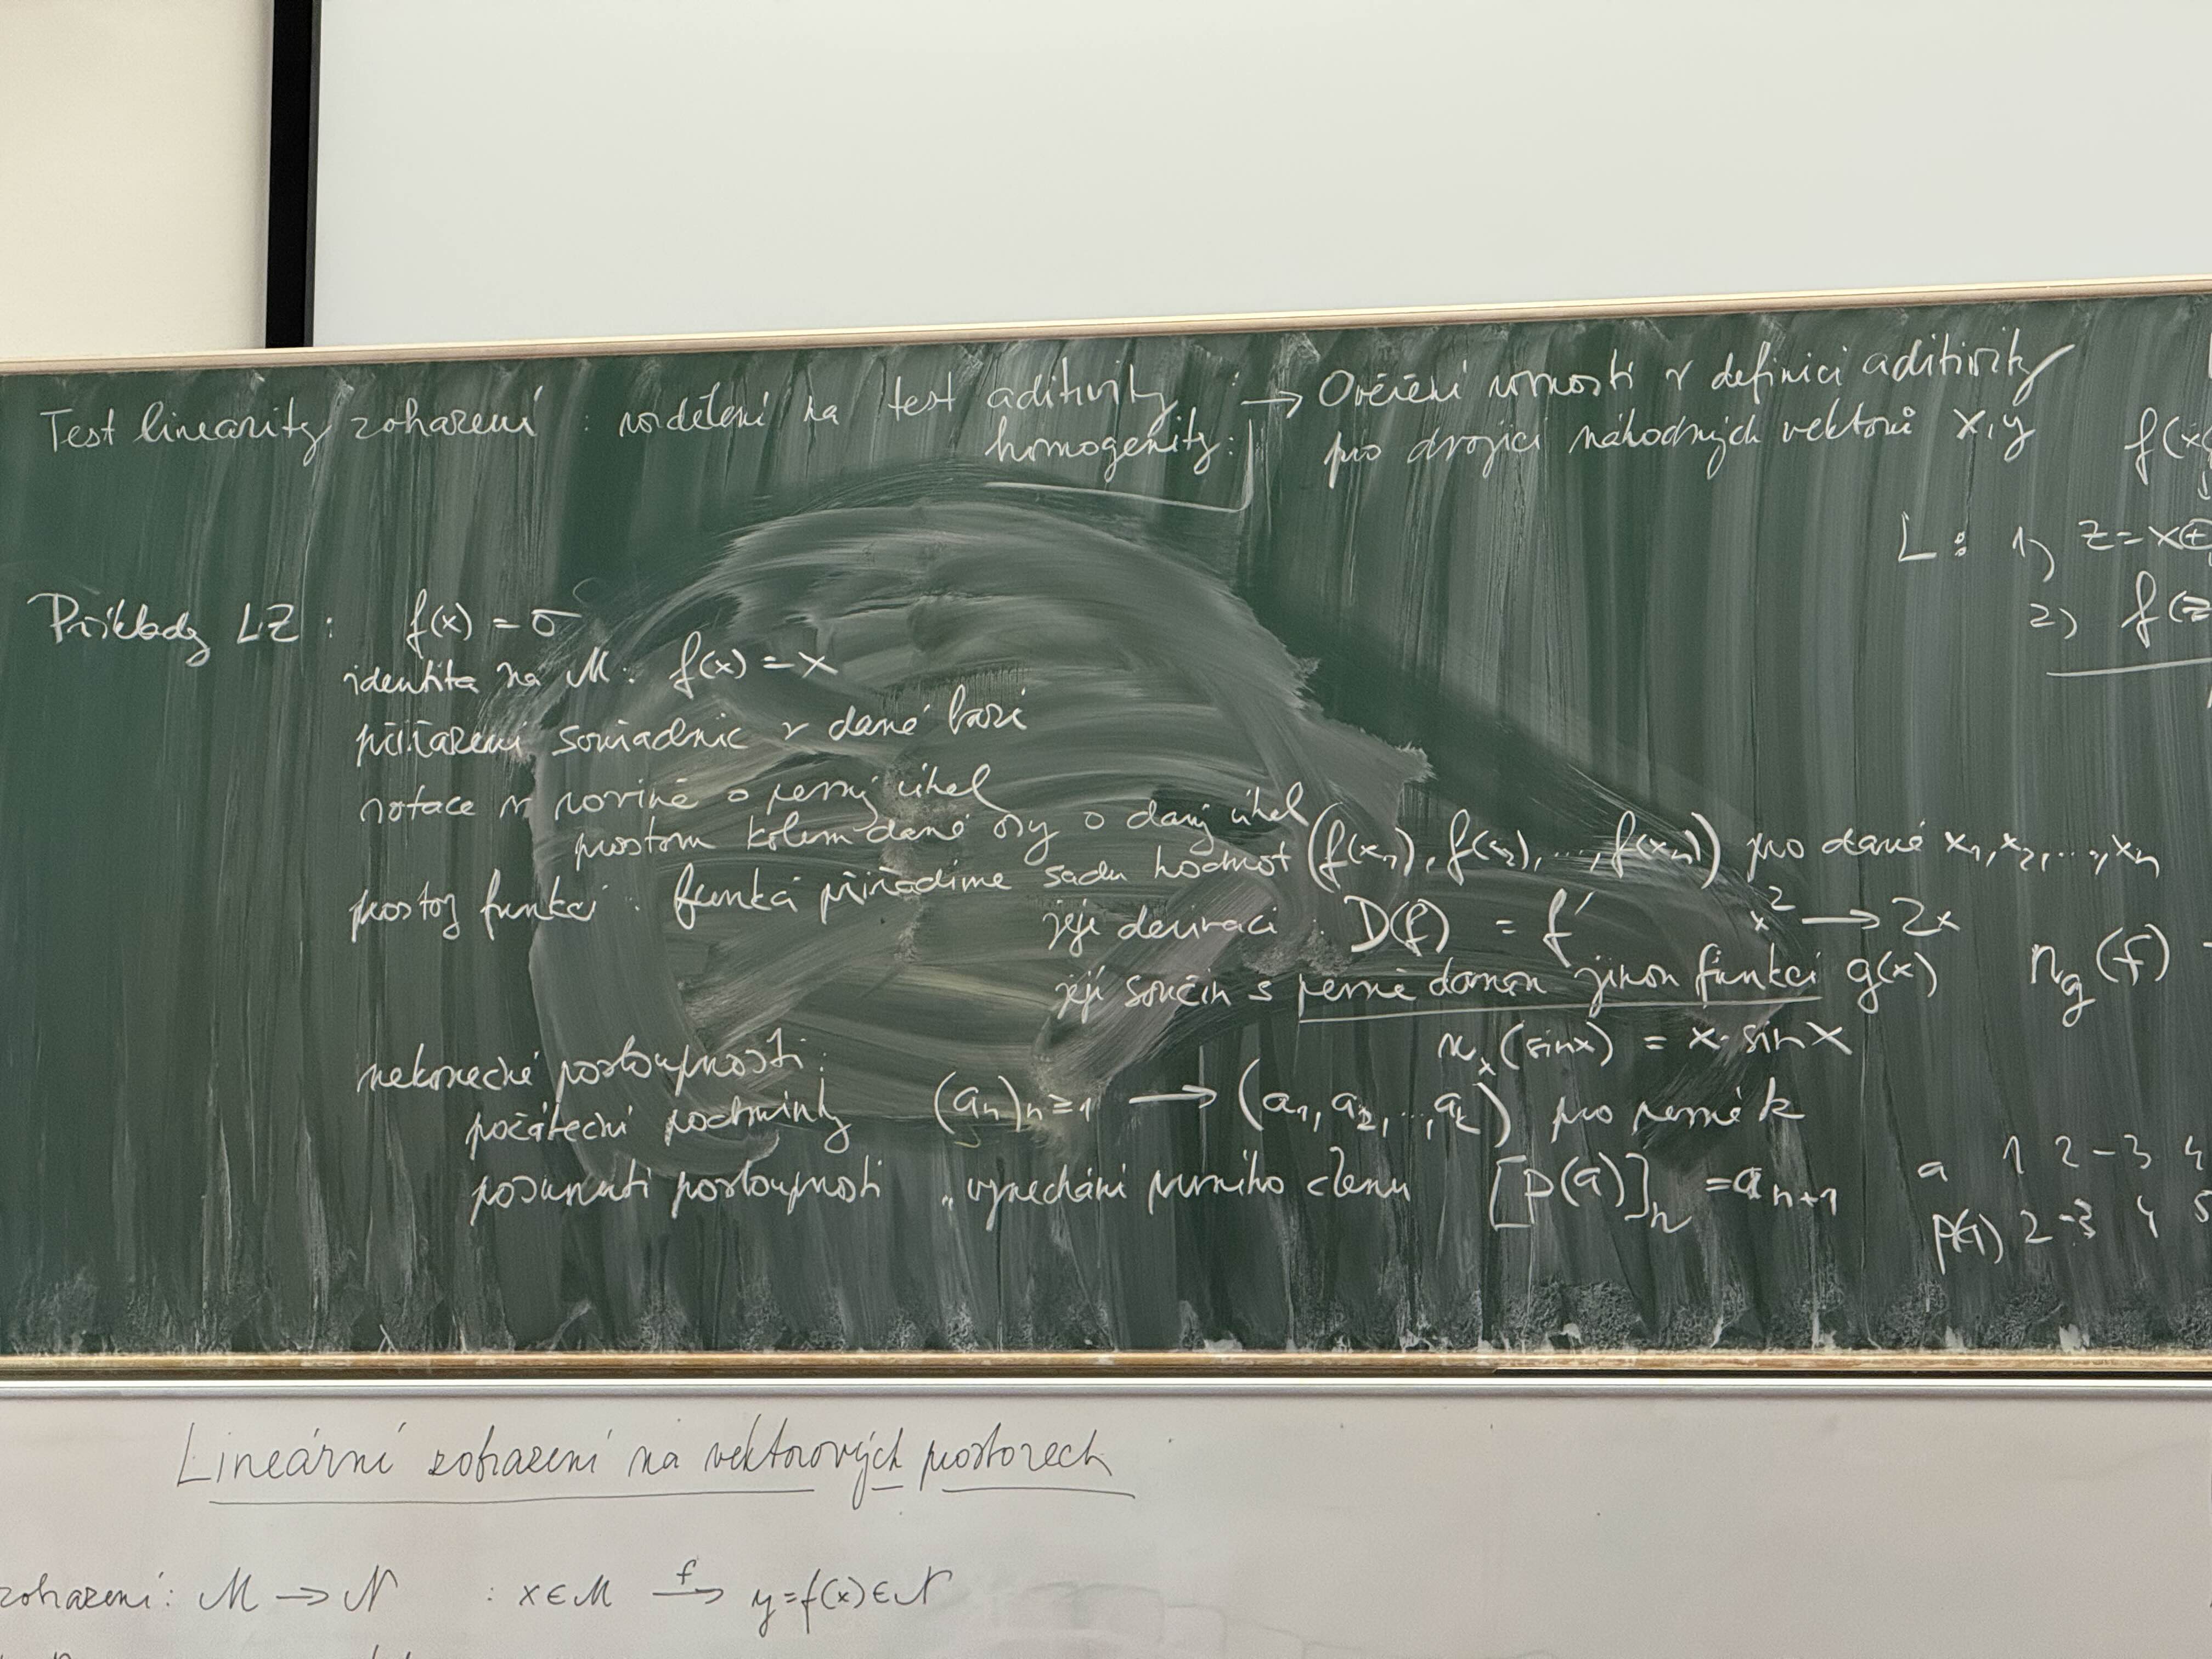 Test linearity zobrazení : rozdělení na test aditivity : → Ověření rovnosti v definici aditivity
homogenity: pro dvojici náhodných vektorů x,y
f(x
L: 1) z=x⊕
2) f(z
Příklady LZ : f(x) = σ
identita na M: f(x) = x
přiřazení souřadnic v dané bázi
rotace v rovině o pevný úhel
prostoru kolem dané osy o daný úhel
prostory funkcí : funkci přiřadíme sadu hodnot (f(x₁), f(x₂), ..., f(xₙ)) pro dané x₁, x₂, ..., xₙ
její derivaci : D(f) = f′ x² → 2x
její součin s pevně danou jinou funkcí g(x) n_g(f)
nₓ(sinx) = x·sin x
nekonečné posloupnosti:
počáteční podmínky (aₙ)ₙ≥₁ → (a₁, a₂, .., aₖ) pro pevné k
posunutí posloupnosti „vynechání prvního členu [P(a)]ₙ = aₙ₊₁
a 1 2 -3 4
P(a) 2 -3 4 5
Lineární zobrazení na vektorových prostorech
zobrazení: M → N : x∈M →f y=f(x)∈N